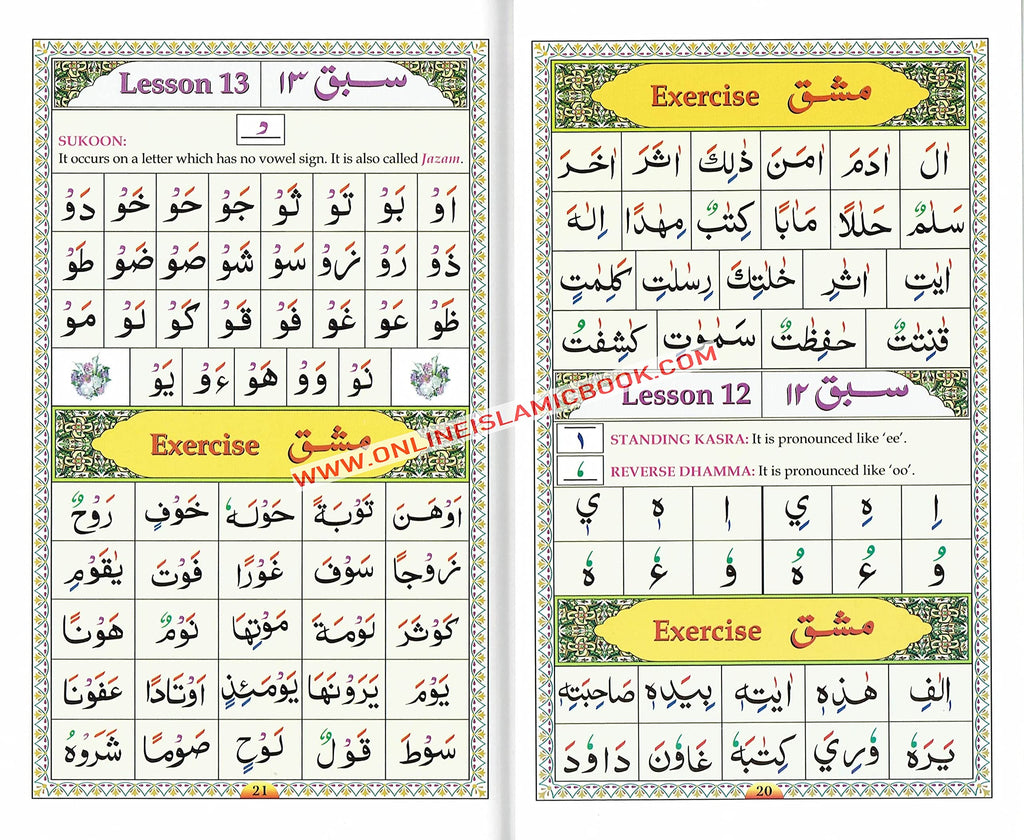 Exercise مشق
اٰلَ اٰدَمَ اٰمَنَ ذٰلِكَ اٰثَرَ اٰخَرَ
سَلٰمٌ حَلٰلًا مَاٰبًا كِتٰبٌ مِهٰدًا اِلٰهَ
اٰيٰتِ اٰثٰرِ خٰلٰتِكَ رِسٰلٰتِ كَلِمٰتٍ
قٰنِتٰتٌ حٰفِظٰتٌ سَمٰوٰتٍ كٰشِفٰتُ
Lesson 12 سبق ١٢
STANDING KASRA: It is pronounced like ‘ee’.
REVERSE DHAMMA: It is pronounced like ‘oo’.
اِ هِ يِ اٖ هٖ يٖ
وُ ءُ هُ وٗ ءٗ هٗ
Exercise مشق
اٖلٰفِ هٰذِهٖ اٰيٰتِهٖ بِيَدِهٖ صَاحِبَتِهٖ
يَرَهٗ وٗرِيَ كِتٰبَهٗ غَاوٗنَ دَاوٗدَ
20
Lesson 13 سبق ١٣
SUKOON:
It occurs on a letter which has no vowel sign. It is also called Jazam.
اَوْ بَوْ تَوْ ثَوْ جَوْ حَوْ خَوْ دَوْ
ذَوْ رَوْ زَوْ سَوْ شَوْ صَوْ ضَوْ طَوْ
ظَوْ عَوْ غَوْ فَوْ قَوْ كَوْ لَوْ مَوْ
نَوْ وَوْ هَوْ ءَوْ يَوْ
Exercise مشق
اَوْهَنَ تَوْبَةً حَوْلَهٗ خَوْفٍ رَوْحٌ
زَوْجًا سَوْفَ غَوْرًا فَوْتَ يٰقَوْمِ
كَوْثَرَ لَوْمَةَ مَوْتِهَا نَوْمٌ هَوْنًا
يَوْمَ يَرَوْنَهَا يَوْمَئِذٍ اَوْتَادًا عَفَوْنَا
سَوْطَ قَوْلٌ لَوْحٍ صَوْمًا شَرَوْهُ
21
WWW.ONLINEISLAMICBOOK.COM